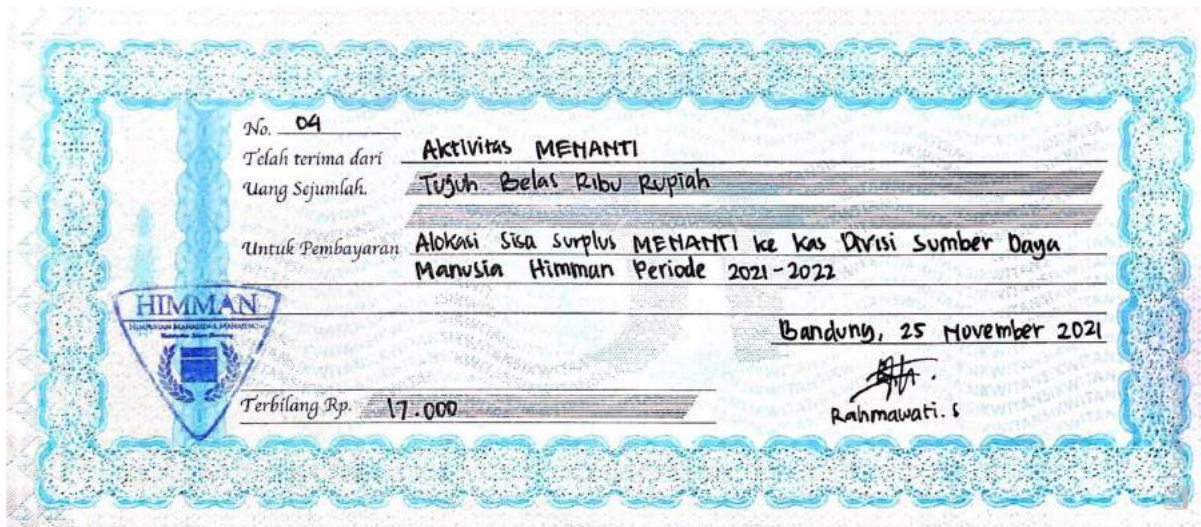 No. 04
Telah terima dari Aktivitas MENANTI
Uang Sejumlah. Tujuh Belas Ribu Rupiah
Untuk Pembayaran Alokasi Sisa Surplus MENANTI ke kas Divisi Sumber Daya
Manusia Himman Periode 2021-2022
HIMMAN
HIMPUNAN MAHASISWA MANAJEMEN
Bandung, 25 November 2021
Terbilang Rp. 17.000
Rahmawati. S